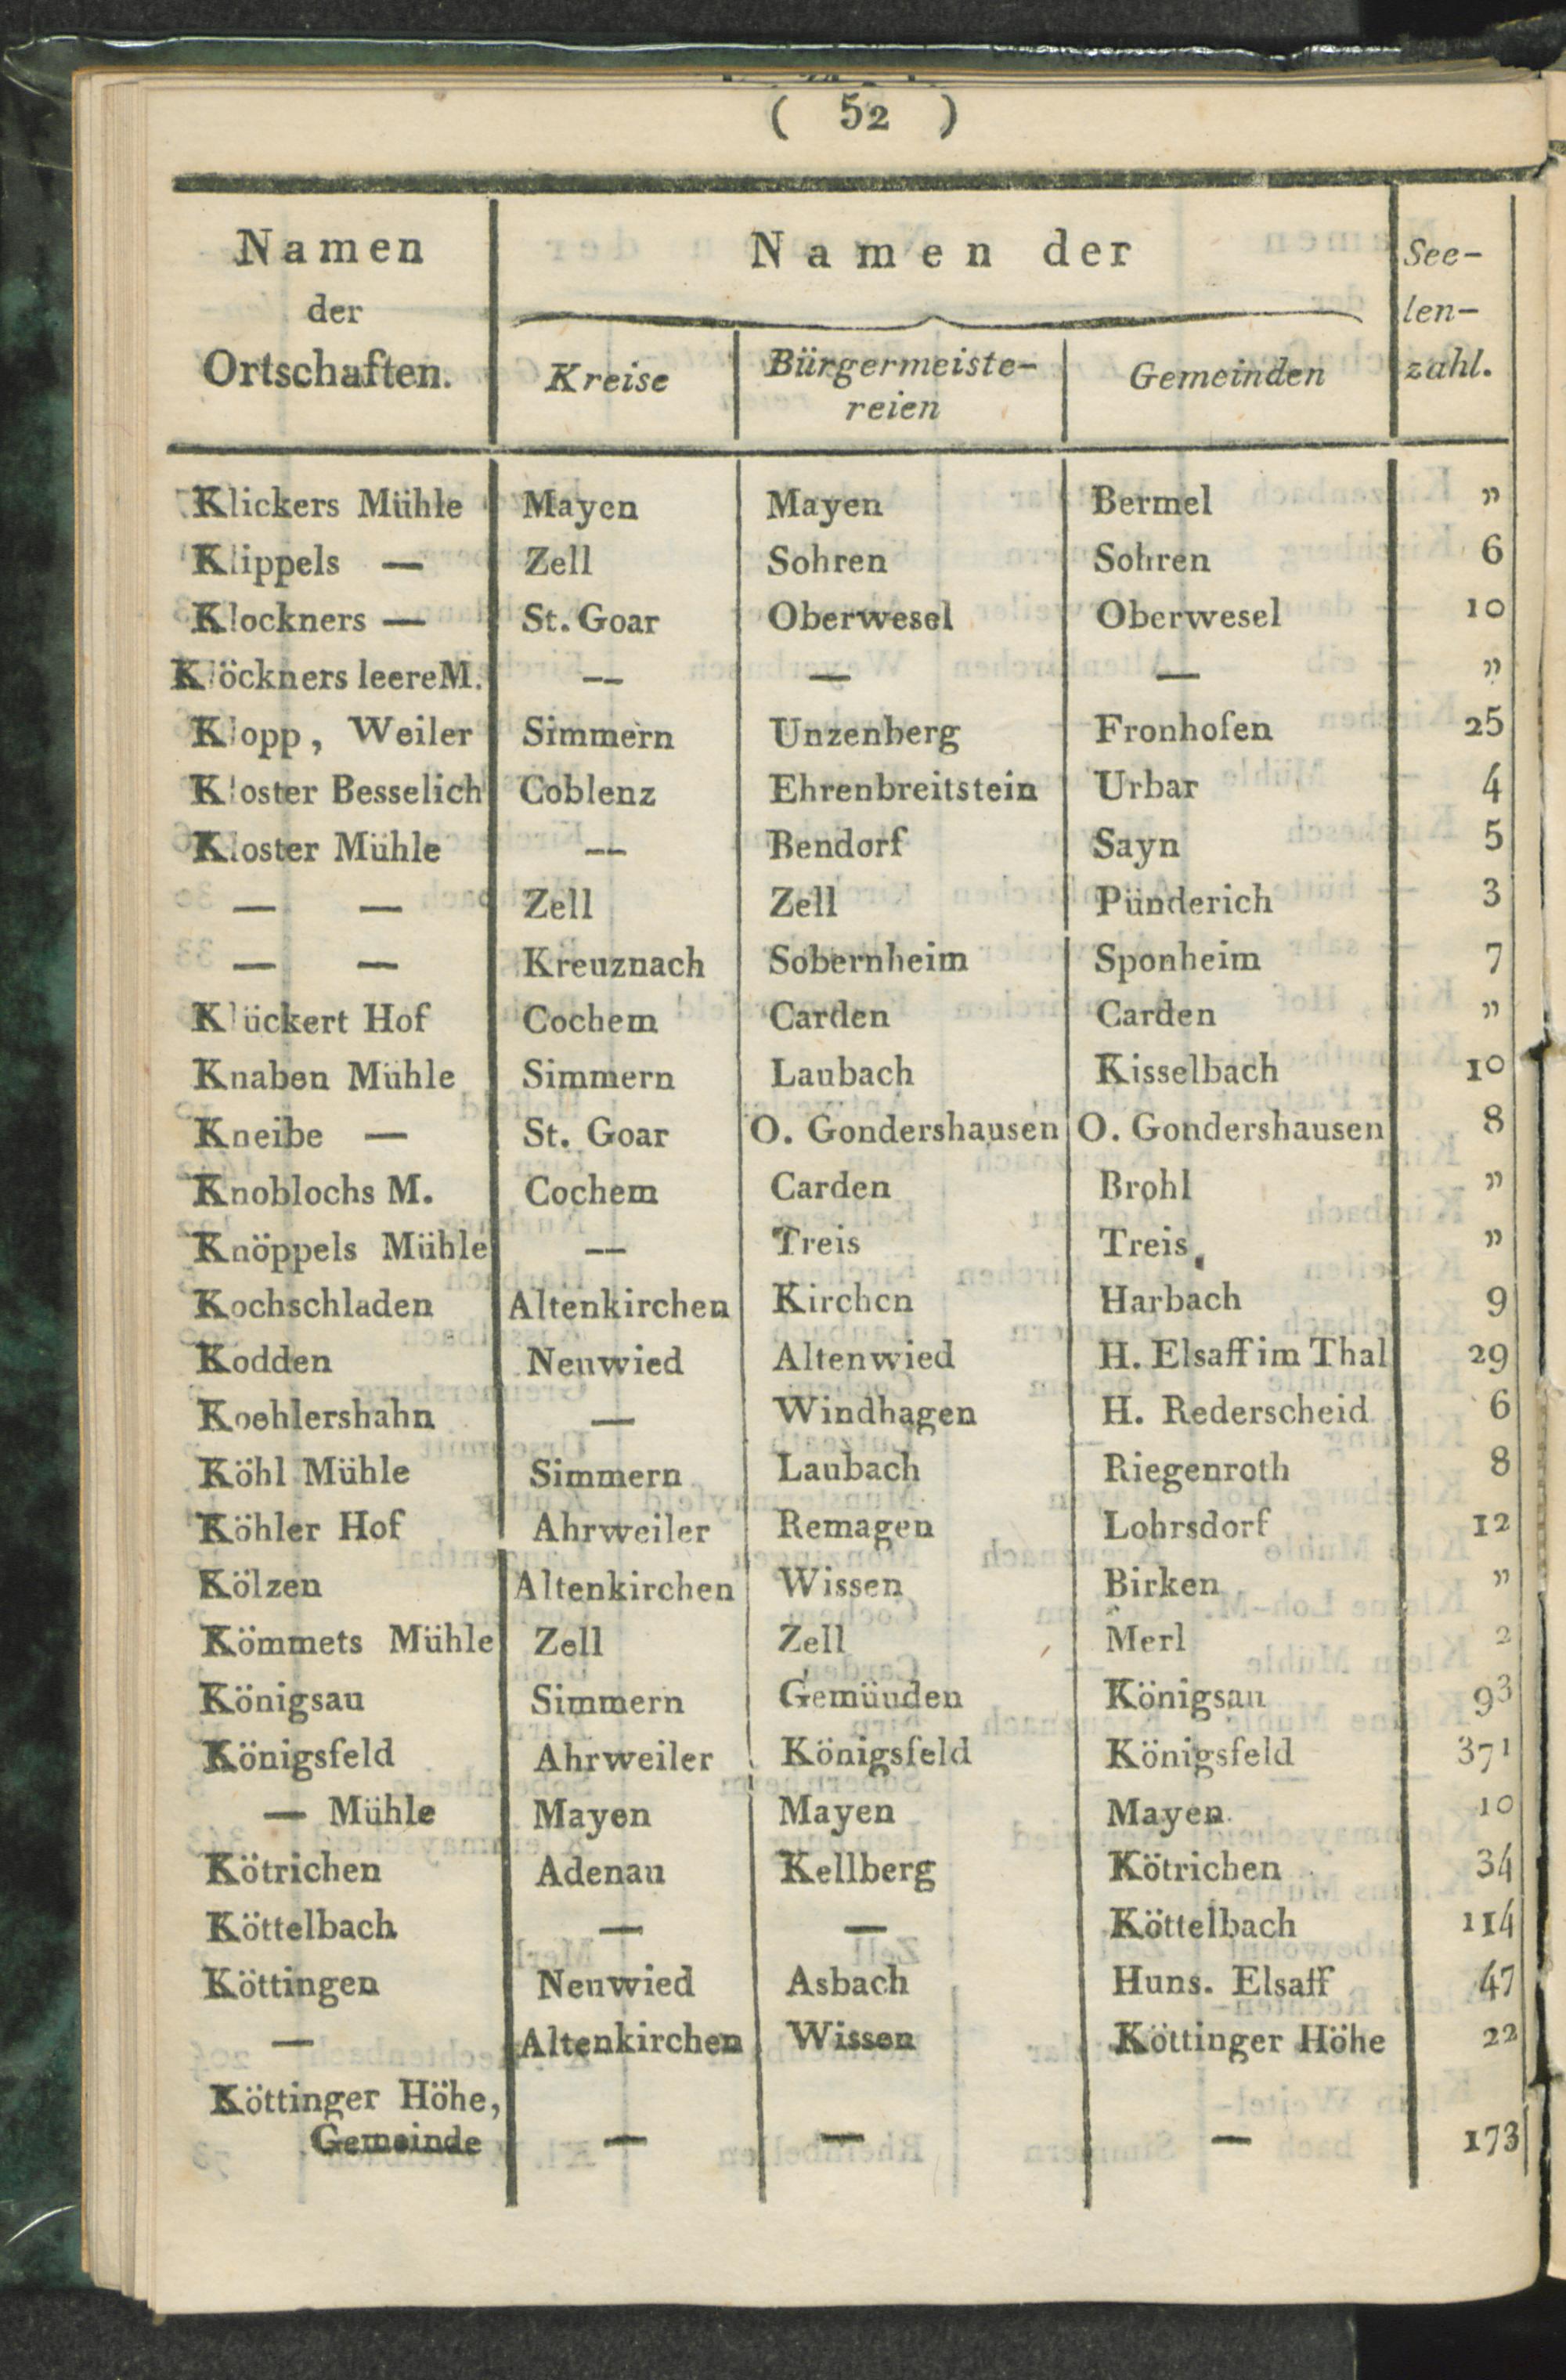 ( 52 )
Namen Namen der See-
der len-
Ortschaften. Kreise Bürgermeiste- Gemeinden zahl.
reien
Klickers Mühle Mayen Mayen Bermel „
Klippels — Zell Sohren Sohren 6
Klockners — St. Goar Oberwesel Oberwesel 10
Klöckners leere M. — — — „
Klopp, Weiler Simmern Unzenberg Fronhofen 25
Kloster Besselich Coblenz Ehrenbreitstein Urbar 4
Kloster Mühle — Bendorf Sayn 5
— — Zell Zell Pünderich 3
— — Kreuznach Sobernheim Sponheim 7
Klückert Hof Cochem Carden Carden „
Knaben Mühle Simmern Laubach Kisselbach 10
Kneibe — St. Goar O. Gondershausen O. Gondershausen 8
Knoblochs M. Cochem Carden Brohl „
Knöppels Mühle — Treis Treis „
Kochschladen Altenkirchen Kirchen Harbach 9
Kodden Neuwied Altenwied H. Elsaff im Thal 29
Koehlershahn — Windhagen H. Rederscheid 6
Köhl Mühle Simmern Laubach Riegenroth 8
Köhler Hof Ahrweiler Remagen Lohrsdorf 12
Kölzen Altenkirchen Wissen Birken „
Kömmets Mühle Zell Zell Merl 2
Königsau Simmern Gemünden Königsau 93
Königsfeld Ahrweiler Königsfeld Königsfeld 371
— Mühle Mayen Mayen Mayen 10
Kötrichen Adenau Kellberg Kötrichen 34
Köttelbach — — Köttelbach 114
Köttingen Neuwied Asbach Huns. Elsaff 47
— Altenkirchen Wissen Köttinger Höhe 22
Köttinger Höhe,
Gemeinde — — — 173